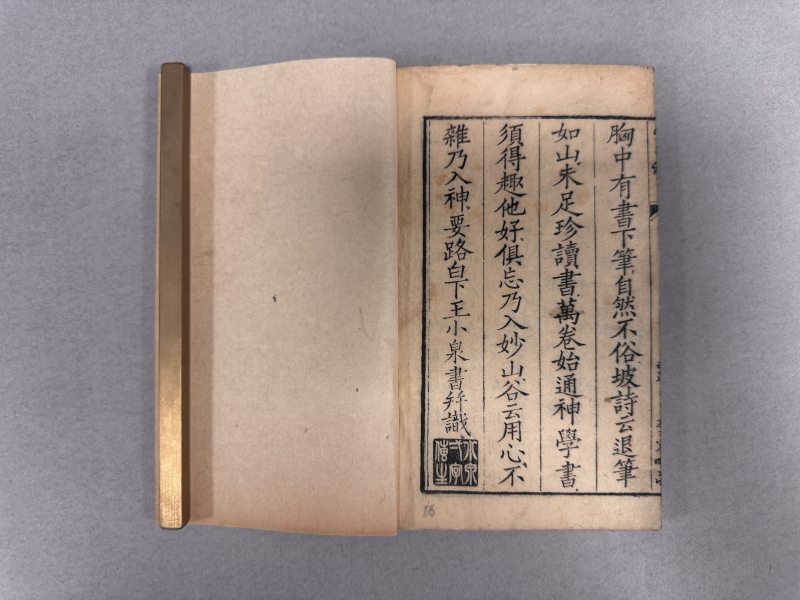 胸中有書下筆自然不俗坡詩云退筆
如山未足珍讀書萬卷始通神學書
須得趣他好俱忘乃入妙山谷云用心不
雜乃入神要路白下王小泉書并識
86